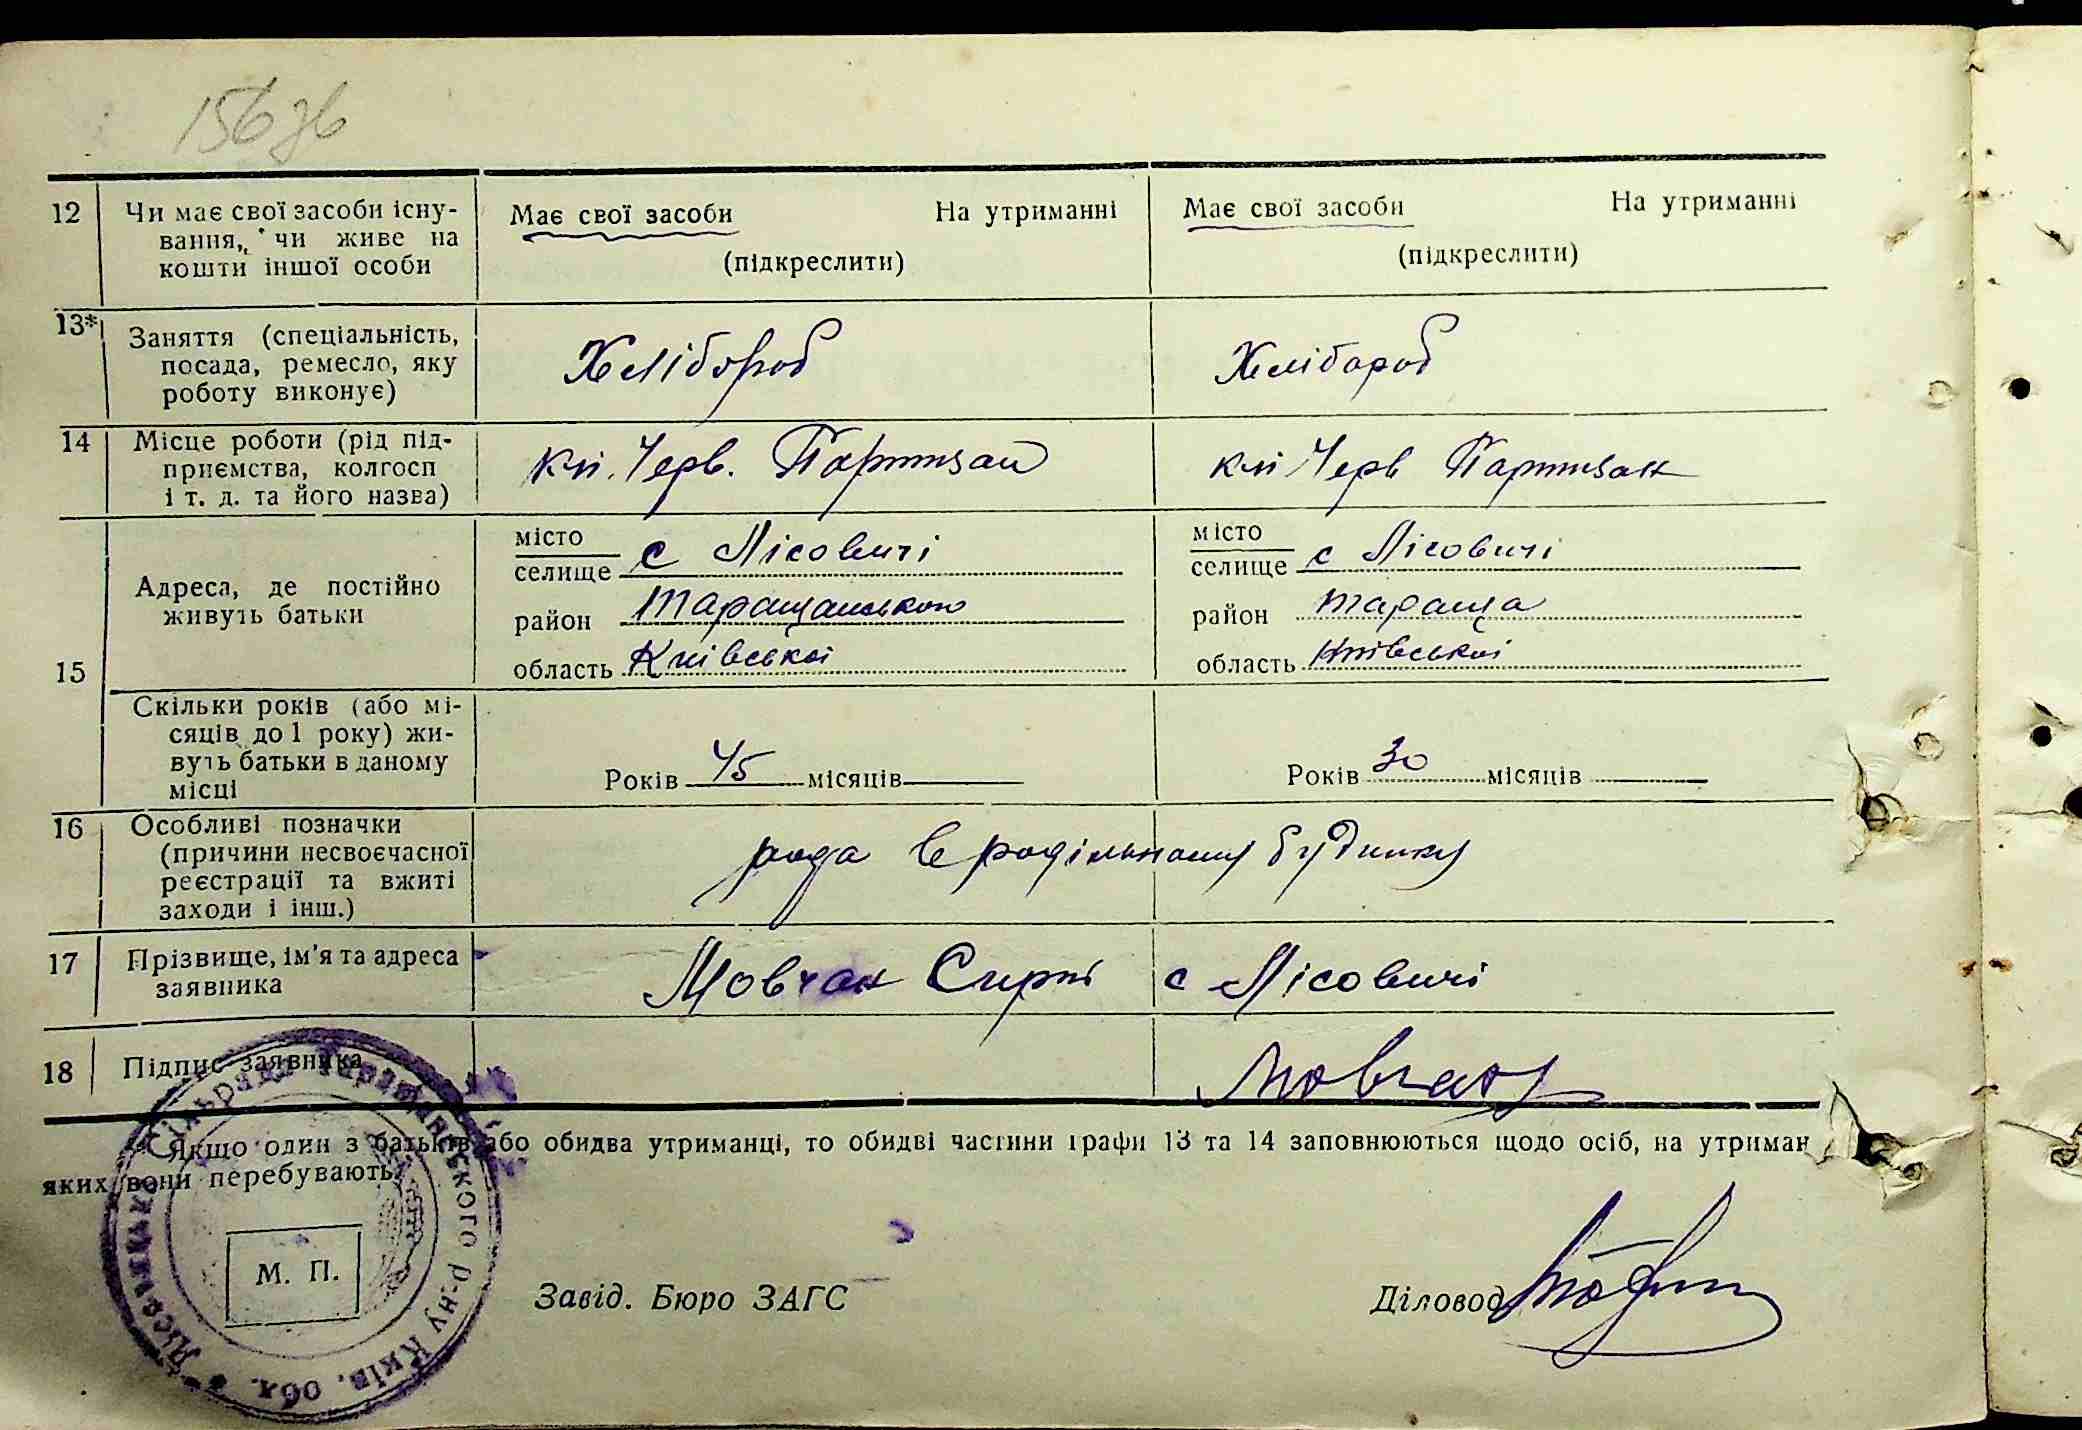 156зв
12 Чи має свої засоби існу-
вання, чи живе на
кошти іншої особи
Має свої засоби На утриманні
(підкреслити)
Має свої засоби На утриманні
(підкреслити)
13* Заняття (спеціальність,
посада, ремесло, яку
роботу виконує)
Хлібороб
Хлібороб
14 Місце роботи (рід під-
приємства, колгосп
і т. д. та його назва)
Черв. Партизан
Черв Партизан
15 Адреса, де постійно
живуть батьки
місто
селище с Лісовичі
район Таращанського
область Київської
місто
селище с Лісовичі
район Тараща
область Київської
Скільки років (або мі-
сяців до 1 року) жи-
вуть батьки в даному
місці
Років 45 місяців
Років 30 місяців
16 Особливі позначки
(причини несвоєчасної
реєстрації та вжиті
заходи і інш.)
в родільному будинку
17 Прізвище, ім'я та адреса
заявника
Мовчан с Лісовичі
18 Підпис заявника
Мовчан
* Якщо один з батьків або обидва утриманці, то обидві частини графи 13 та 14 заповнюються щодо осіб, на утриман
яких вони перебувають.
М. П.
Завід. Бюро ЗАГС
Діловод
сільрада Таращанського р-ну Київ. обл.